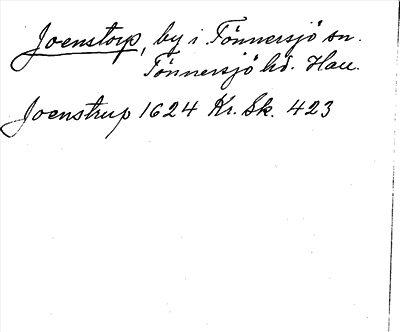 Joenstorp, by i Tönnersjö sn.
Tönnersjö hd. Hall.
Joenstrup 1624 Kr. Sk. 423